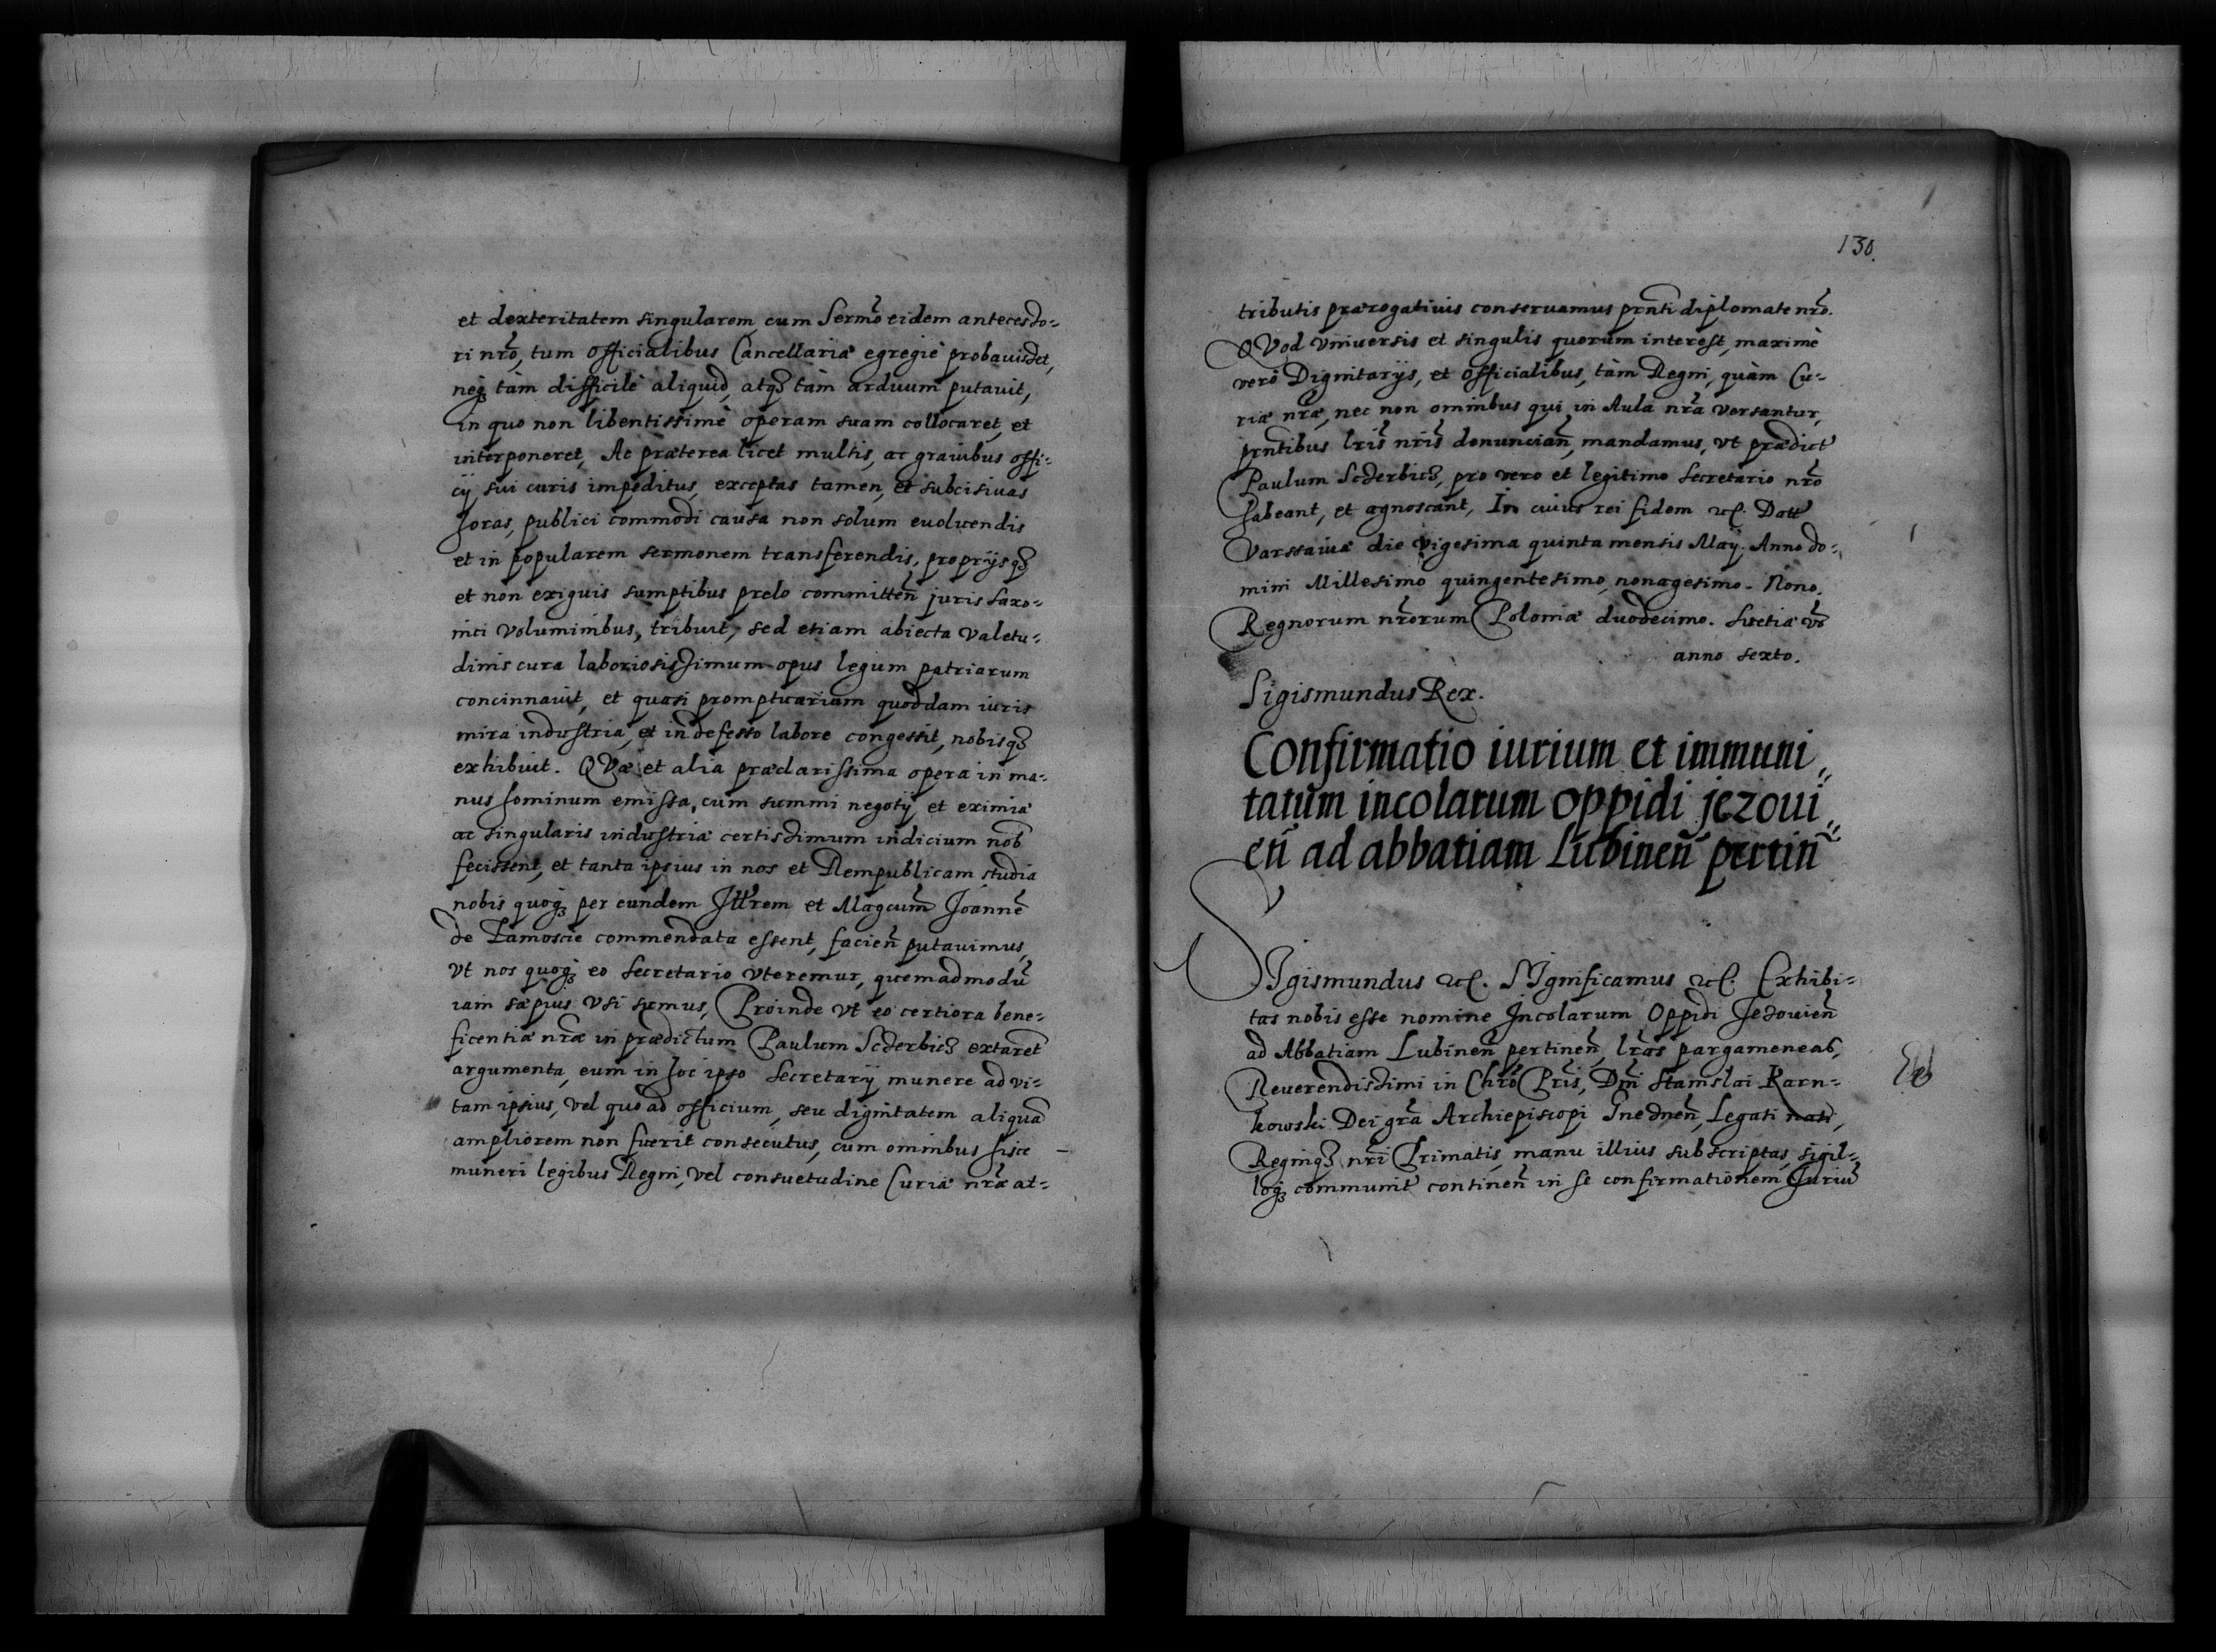 et dexteritatem singularem, cum Sermo eidem antecesso-
ri nro, tum officialibus Cancellariæ egregiè probauisset,
neq tàm difficilè aliquid, atq tàm arduum putauit,
in quo non libentissimè operam suam collocaret, et
interponeret, Ac præterea licet multis, ac grauibus offi-
cij sui curis impeditus, exceptas tamen, et subcisiuas
horas, publici commodi causa non solum euoluendis
et in popularem sermonem transferendis, proprijsq
et non exiguis sumptibus prelo committen juris saxo-
nici Voluminibus, tribuit, sed etiam abiecta Valetu-
dinis cura laboriosissimum opus legum patriarum
concinnauit, et quasi promptuarium quoddam iuris
mira industria, et indefesso labore congessit, nobisq
exhibuit. QVæ et alia præclarissima opera in ma-
nus hominum emissa, cum summi negotij et eximiæ
ac singularis industriæ certissimum indicium nob
fecissent, et tanta ipsius in nos et Rempublicam studia
nobis quoq per eundem Illrem et Magcum Joanne
de Zamoscie commendata essent, facien putauimus,
Vt nos quoq eo Secretario Vteremur, quemadmodu
iam sæpius Vsi sumus, Proinde Vt eo certiora bene-
ficentiæ nræ in prædictum Paulum Sczerbicz extaret
argumenta, eum in hoc ipso Secretarij munere ad vi-
tam ipsius, Vel quoad officium, seu dignitatem aliqua
ampliorem non fuerit consecutus, cum omnibus huic
muneri legibus Regni, Vel consuetudine Curiæ nræ at-
130.
tributis prærogatiuis conseruamus prnti diplomate nro.
QVod Vniuersis et singulis quorum interest, maximè
verò Dignitarijs, et Officialibus, tàm Regni, quàm Cu-
riæ nræ, nec non omnibus qui in Aula nra Versantur,
prntibus lris nris denuncian, mandamus, Vt prædict
Paulum Sczerbicz, pro vero et legitimo Secretario nro
habeant, et agnoscant, In cuius rei fidem etc. Datt
Varssauiæ die vigesima quinta mensis Maij. Anno do-
mini Millesimo quingentesimo, nonagesimo. Nono.
Regnorum nrorum Poloniæ duodecimo. Suetiæ vo
anno sexto.
Sigismundus Rex.
Confirmatio iurium et immuni„
tatum incolarum oppidi jezoui„
en ad abbatiam Lubinen pertin
SIgismundus etc. SIgnificamus etc. Exhibi-
tas nobis esse nomine Incolarum Oppidi Jezouien
ad Abbatiam Lubinen pertinen, lras pargameneas,
Reuerendissimi in Chro Pris, Dni Stanislai Karn-
kowski Dei gra Archiepiscopi Gneznen, Legati nati,
Regniq nri Primatis, manu illius subscriptas, sigil-
loq communit continen in se confirmationem Juriu